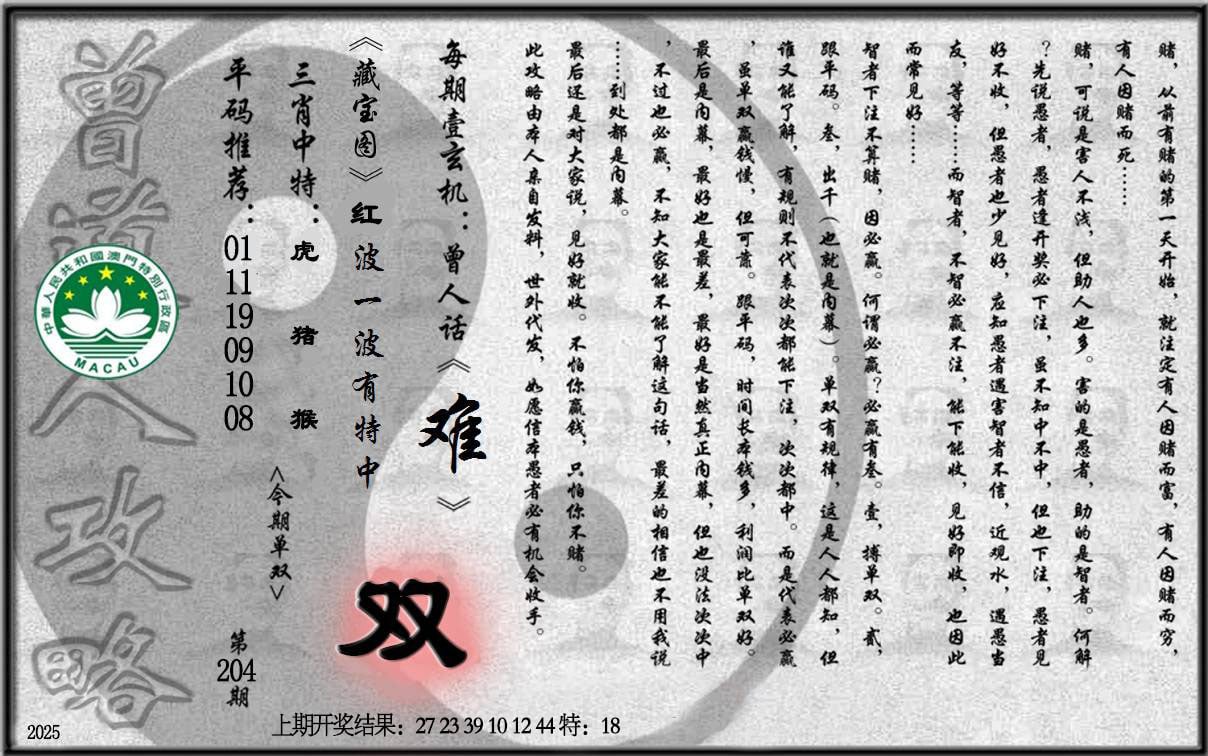 赌，从前有赌的第一天开始，就注定有人因赌而富，有人因赌而穷，
有人因赌而死……
赌，可说是害人不浅，但助人也多。害的是愚者，助的是智者。何解
？先说愚者，愚者逢开奖必下注，虽不知中不中，但也下注，愚者见
好不收，但愚者也少见好，应知愚者遇害智者不信，近观水，遇愚当
友，等等……而智者，不智必赢不注，能下能收，见好即收，也因此
而常见好……
智者下注不算赌，因必赢。何谓必赢？必赢有叁。壹，搏单双。贰，
跟平码。叁，出千（也就是内幕）。单双有规律，这是人人都知，但
谁又能了解，有规则不代表次次都能下注，次次都中。而是代表必赢
，虽单双赢钱慢，但可靠。跟平码，时间长本钱多，利润比单双好。
最后是内幕，最好也是最差，最好是当然真正内幕，但也没法次次中
，不过也必赢，不知大家能不能了解这句话，最差的相信也不用我说
……到处都是内幕。
最后还是对大家说，见好就收。不怕你赢钱，只怕你不赌。
此攻略由本人亲自发料，世外代发，如愿信本愚者必有机会收手。
每期壹玄机：曾人话《难》
《藏宝图》红波一波有特中
双
三肖中特：虎 猪 猴
<今期单双>
平码推荐：01 11 19 09 10 08
第204期
曾道人攻略
中華人民共和國澳門特別行政區
MACAU
2025
上期开奖结果：27 23 39 10 12 44 特：18